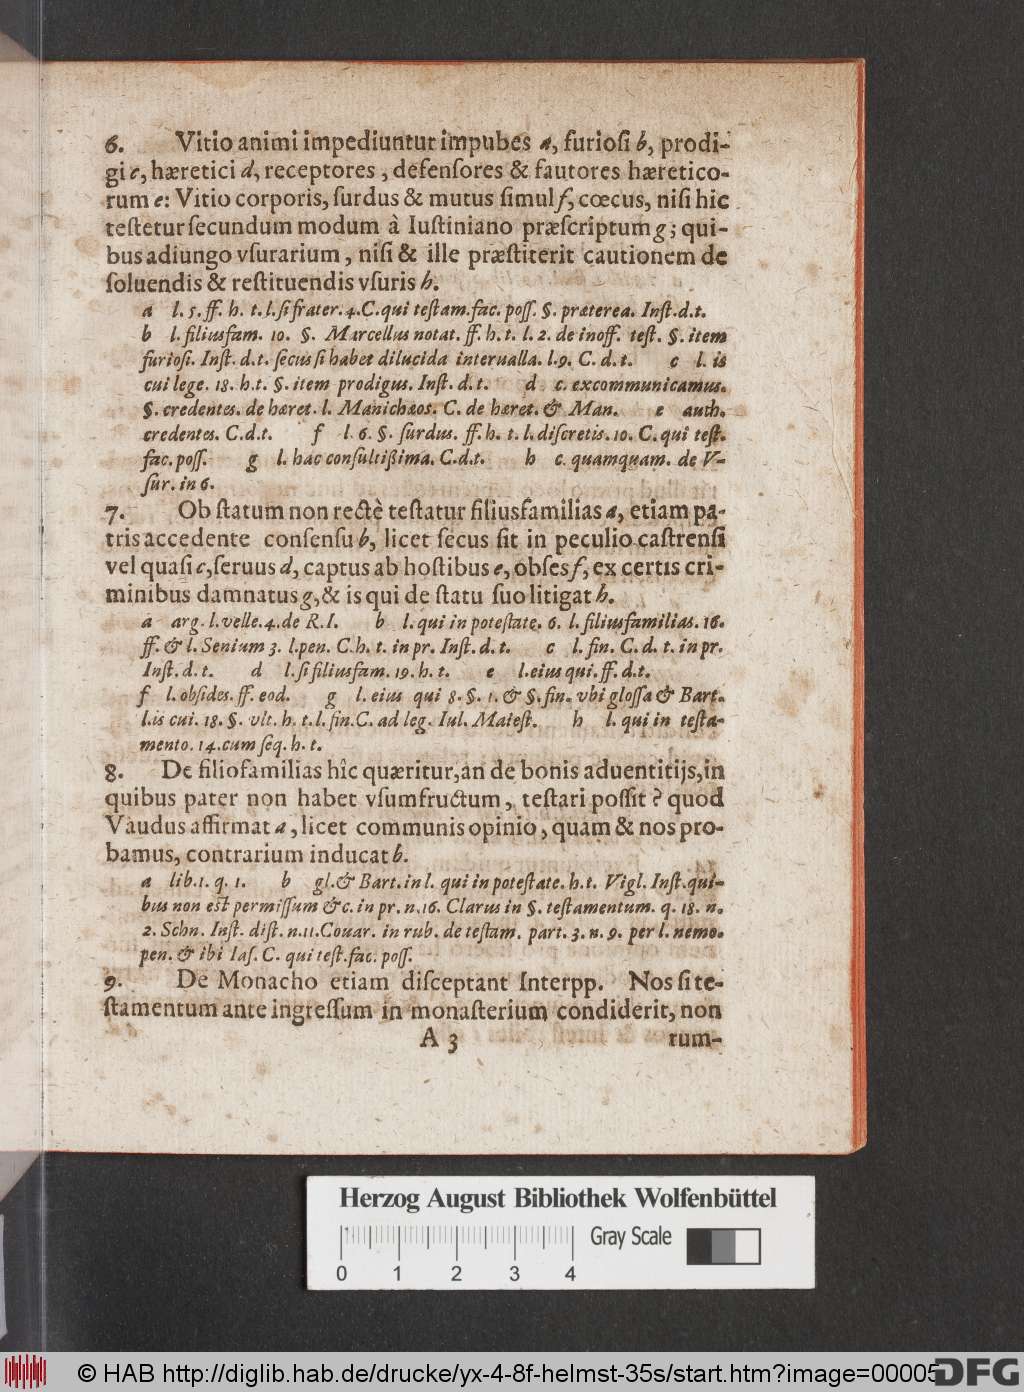 6. Vitio animi impediuntur impubes a, furioſi b, prodi-
gi c, hæretici d, receptores, defenſores & fautores hæretico-
rum e: Vitio corporis, ſurdus & mutus ſimul f, cœcus, niſi hic
teſtetur ſecundum modum à Iuſtiniano præſcriptum g; qui-
bus adiungo vſurarium, niſi & ille præſtiterit cautionem de
ſoluendis & reſtituendis vſuris h.
a l. 5. ff. h. t. l. ſi frater. 4. C. qui teſtam. fac. poſſ. §. præterea. Inſt. d. t.
b l. filiusfam. 10. §. Marcellus notat. ff. h. t. l. 2. de inoff. teſt. §. item
furioſi. Inſt. d. t. ſecus ſi habet dilucida interualla. l. 9. C. d. t. c l. is
cui lege. 18. h. t. §. item prodigus. Inſt. d. t. d c. excommunicamus.
§. credentes. de hæret. l. Manichæos. C. de hæret. & Man. e auth.
credentes. C. d. t. f l. 6. §. ſurdus. ff. h. t. l. diſcretis. 10. C. qui teſt.
fac. poſſ. g l. hac conſultißima. C. d. t. h c. quamquam. de V-
ſur. in 6.
7. Ob ſtatum non rectè teſtatur filiusfamilias a, etiam pa-
tris accedente conſenſu b, licet ſecus ſit in peculio caſtrenſi
vel quaſi c, ſeruus d, captus ab hoſtibus e, obſes f, ex certis cri-
minibus damnatus g, & is qui de ſtatu ſuo litigat h.
a arg. l. velle. 4. de R. I. b l. qui in poteſtate. 6. l. filiusfamilias. 16.
ff. & l. Senium 3. l. pen. C. h. t. in pr. Inſt. d. t. c l. fin. C. d. t. in pr.
Inſt. d. t. d l. ſi filiusfam. 19. h. t. e l. eius qui. ff. d. t.
f l. obſides. ff. eod. g l. eius qui 8. §. 1. & §. fin. vbi gloſſa & Bart.
l. is cui. 18. §. vlt. h. t. l. fin. C. ad leg. Iul. Maieſt. h l. qui in teſta-
mento. 14. cum ſeq. h. t.
8. De filiofamilias hîc quæritur, an de bonis aduentitijs, in
quibus pater non habet vſumfructum, teſtari poſſit? quod
Vaudus affirmat a, licet communis opinio, quam & nos pro-
bamus, contrarium inducat b.
a lib. 1. q. 1. b gl. & Bart. in l. qui in poteſtate. h. t. Vigl. Inſt. qui-
bus non eſt permiſſum &c. in pr. n. 16. Clarus in §. teſtamentum. q. 18. n.
2. Schn. Inſt. diſt. n. 11. Couar. in rub. de teſtam. part. 3. n. 9. per l. nemo.
pen. & ibi Iaſ. C. qui teſt. fac. poſſ.
9. De Monacho etiam diſceptant Interpp. Nos ſi te-
ſtamentum ante ingreſſum in monaſterium condiderit, non
A 3 rum-
Herzog August Bibliothek Wolfenbüttel
Gray Scale
0 1 2 3 4
© HAB http://diglib.hab.de/drucke/yx-4-8f-helmst-35s/start.htm?image=00005
DFG